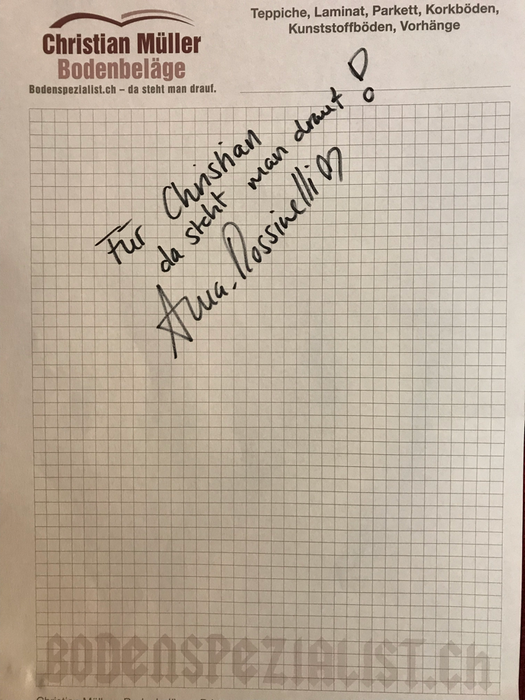 Christian Müller
Bodenbeläge
Bodenspezialist.ch – da steht man drauf.
Teppiche, Laminat, Parkett, Korkböden,
Kunststoffböden, Vorhänge
Für Christian
da steht man drauf!
Anna Rossinelli
BODENSPEZIALIST.Ch